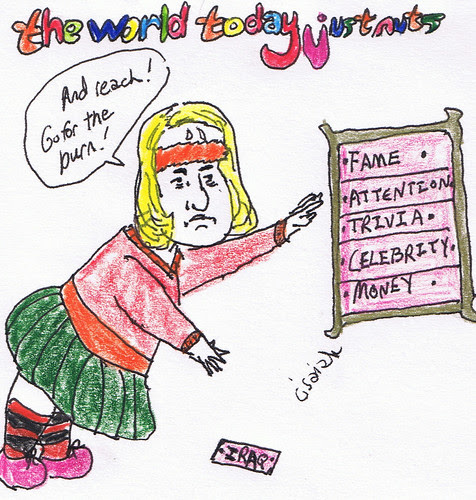 the world today just nuts
And reach!
Go for the
burn!
DD
FAME
ATTENTION
TRIVIA
CELEBRITY
MONEY
cisaiah
IRAQ